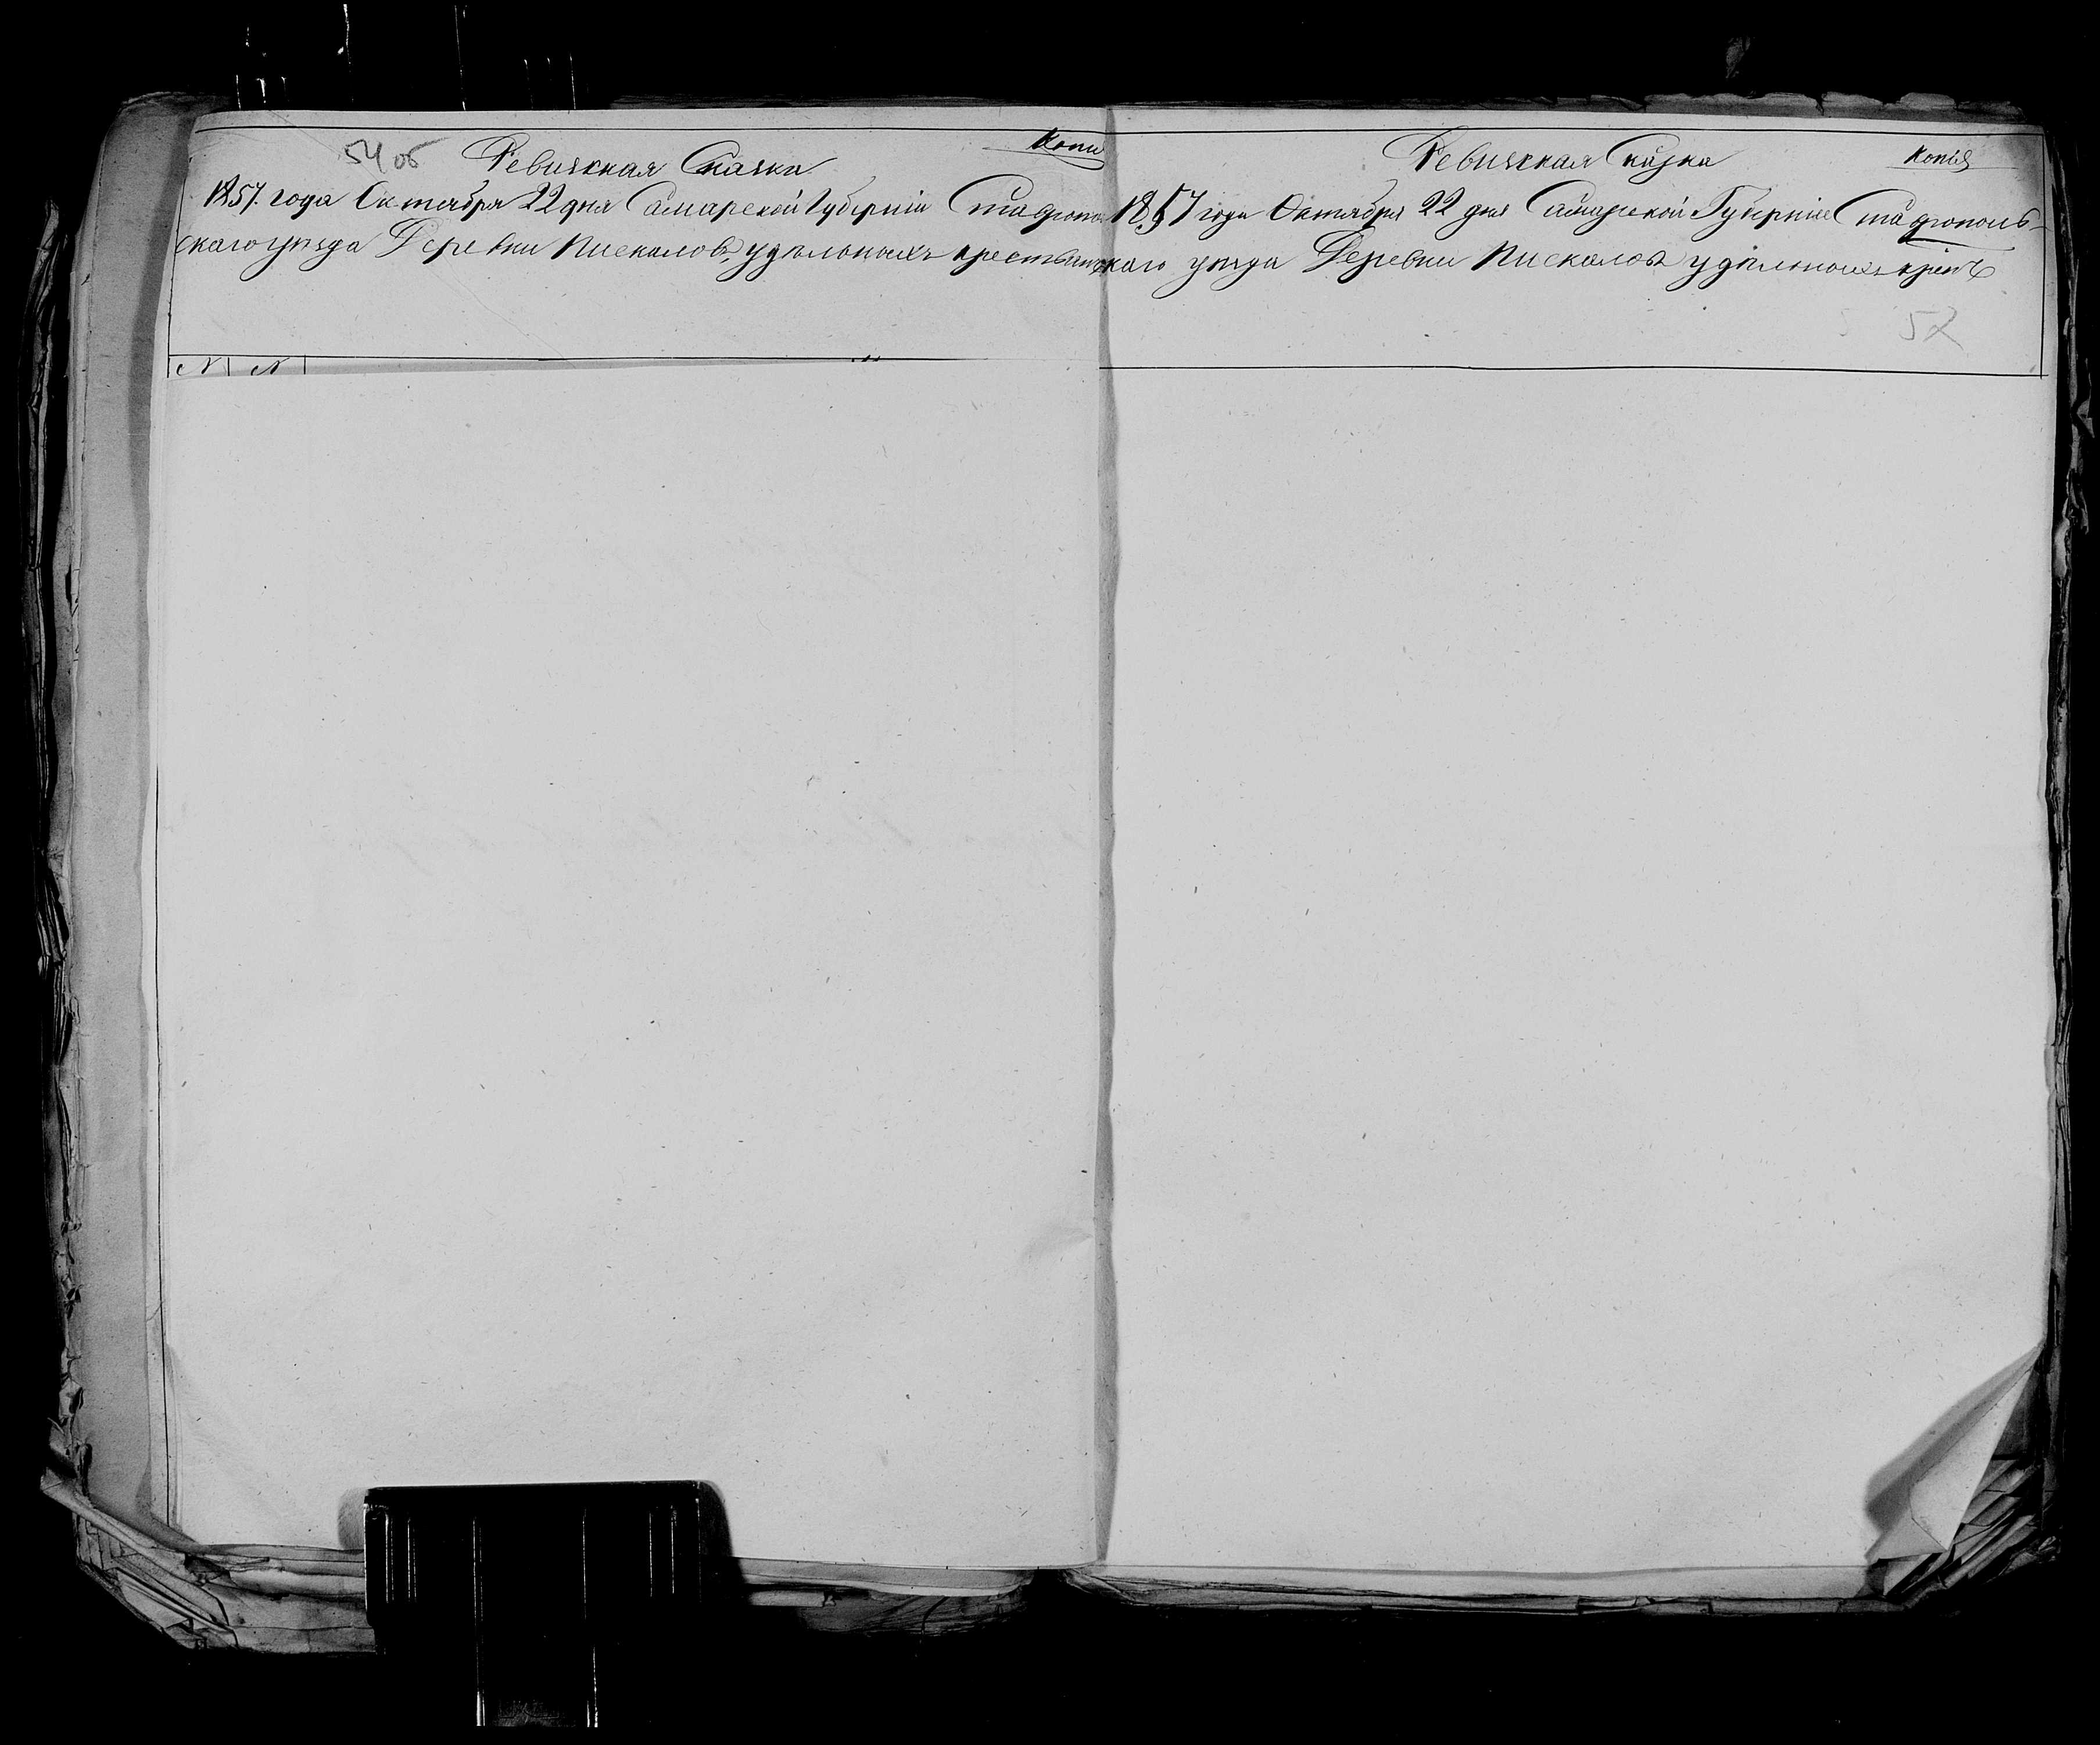 54 об
Ревизская Сказка
Копи
1857. года Октября 22 дня Самарской Губерніи Ставропо
скаго уезда Деревни Пискалов удѣльныхъ крестьян
N N
Ревизская Сказка
Копія
1857 года Октября 22 дня Самарской Губерніи Ставрополь-
скаго уезда Деревни Пискалов удѣльныхъ